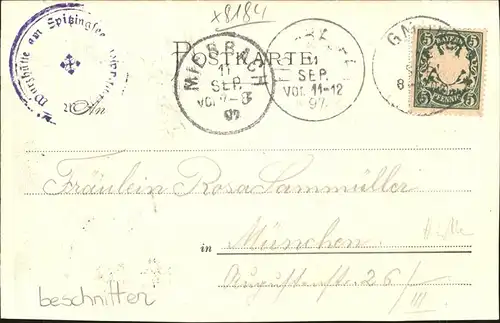 x8184
Wursthütte am Spitzingsee
POSTKARTE.
MIESBACH
11
SEP.
VOR. 7-8
97
SEP.
VOR. 11-12
97.
BAYERN
5 5
5 PFENNIG 5
An
Fräulein Rosa Sammüller
in München.
Augustenstr. 26/III
beschnitten